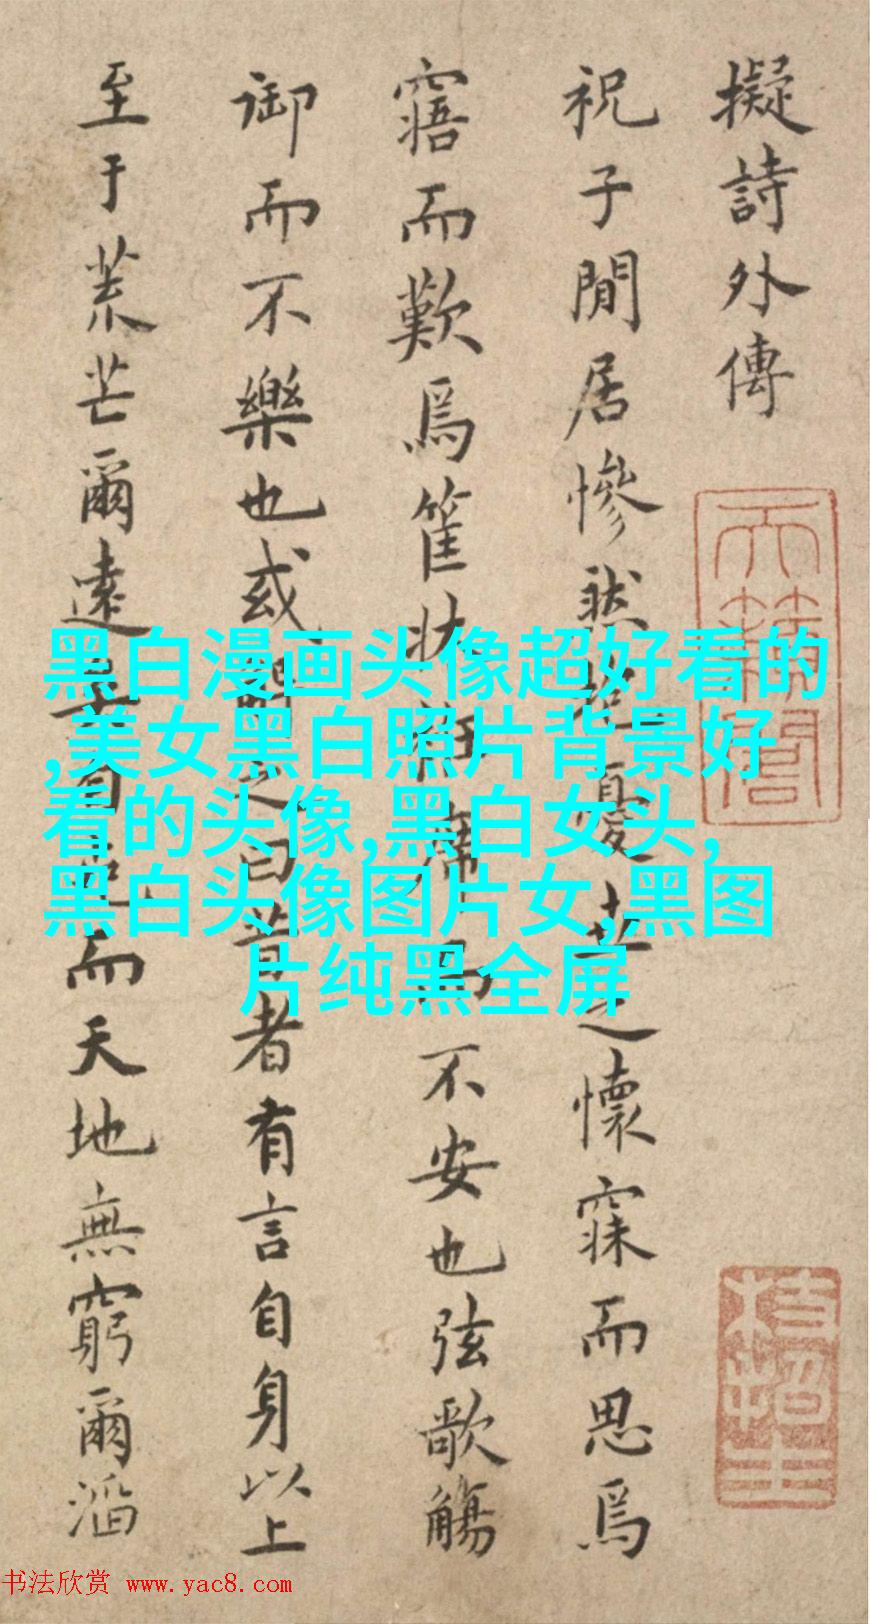 擬詩外傳
祝子閒居慘然憂世之懷寐而思焉
寤而歎焉筐席而不安也弦歌觴
御而不樂也或之曰昔者有言自身以上
至于荒芒爾遠而天地無窮爾滔
天籟閣
枝指生
黑白漫画头像超好看的
,美女黑白照片背景好
看的头像,黑白女头,
黑白头像图片女,黑图
片纯黑全屏
书法欣赏 www.yac8.com